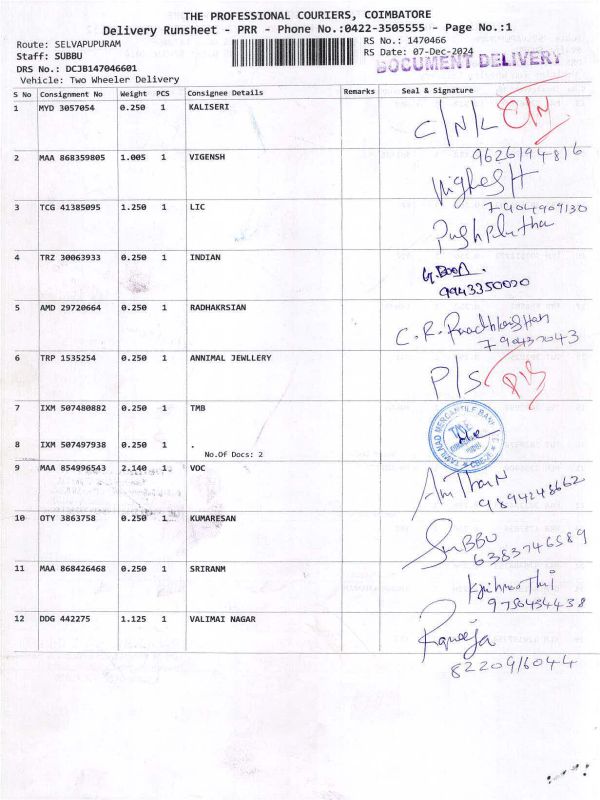 THE PROFESSIONAL COURIERS, COIMBATORE
Delivery Runsheet - PRR - Phone No.:0422-3505555 - Page No.:1
Route: SELVAPUPURAM
RS No.: 1470466
Staff: SUBBU
RS Date: 07-Dec-2024
DRS No.: DCJB147046601
DOCUMENT DELIVERY
Vehicle: Two Wheeler Delivery
S No Consignment No Weight PCS Consignee Details Remarks Seal & Signature
1 MYD 3057054 0.250 1 KALISERI
C/N/L C/N
2 MAA 868359805 1.005 1 VIGENSH
9626194816
VighesH
3 TCG 41385095 1.250 1 LIC
7904909130
4 TRZ 30063933 0.250 1 INDIAN
9943350020
5 AMD 29720664 0.250 1 RADHAKRSIAN
C.R.
6 TRP 1535254 0.250 1 ANNIMAL JEWLLERY
P/S P/S
7 IXM 507480882 0.250 1 TMB
TAMILNAD MERCANTILE BANK
8 IXM 507497938 0.250 1 .
No.Of Docs: 2
9 MAA 854996543 2.140 1 VOC
9894248662
10 OTY 3863758 0.250 1 KUMARESAN
SUBBU
6383746589
11 MAA 868426468 0.250 1 SRIRANM
9750434438
12 DDG 442275 1.125 1 VALIMAI NAGAR
8220916044